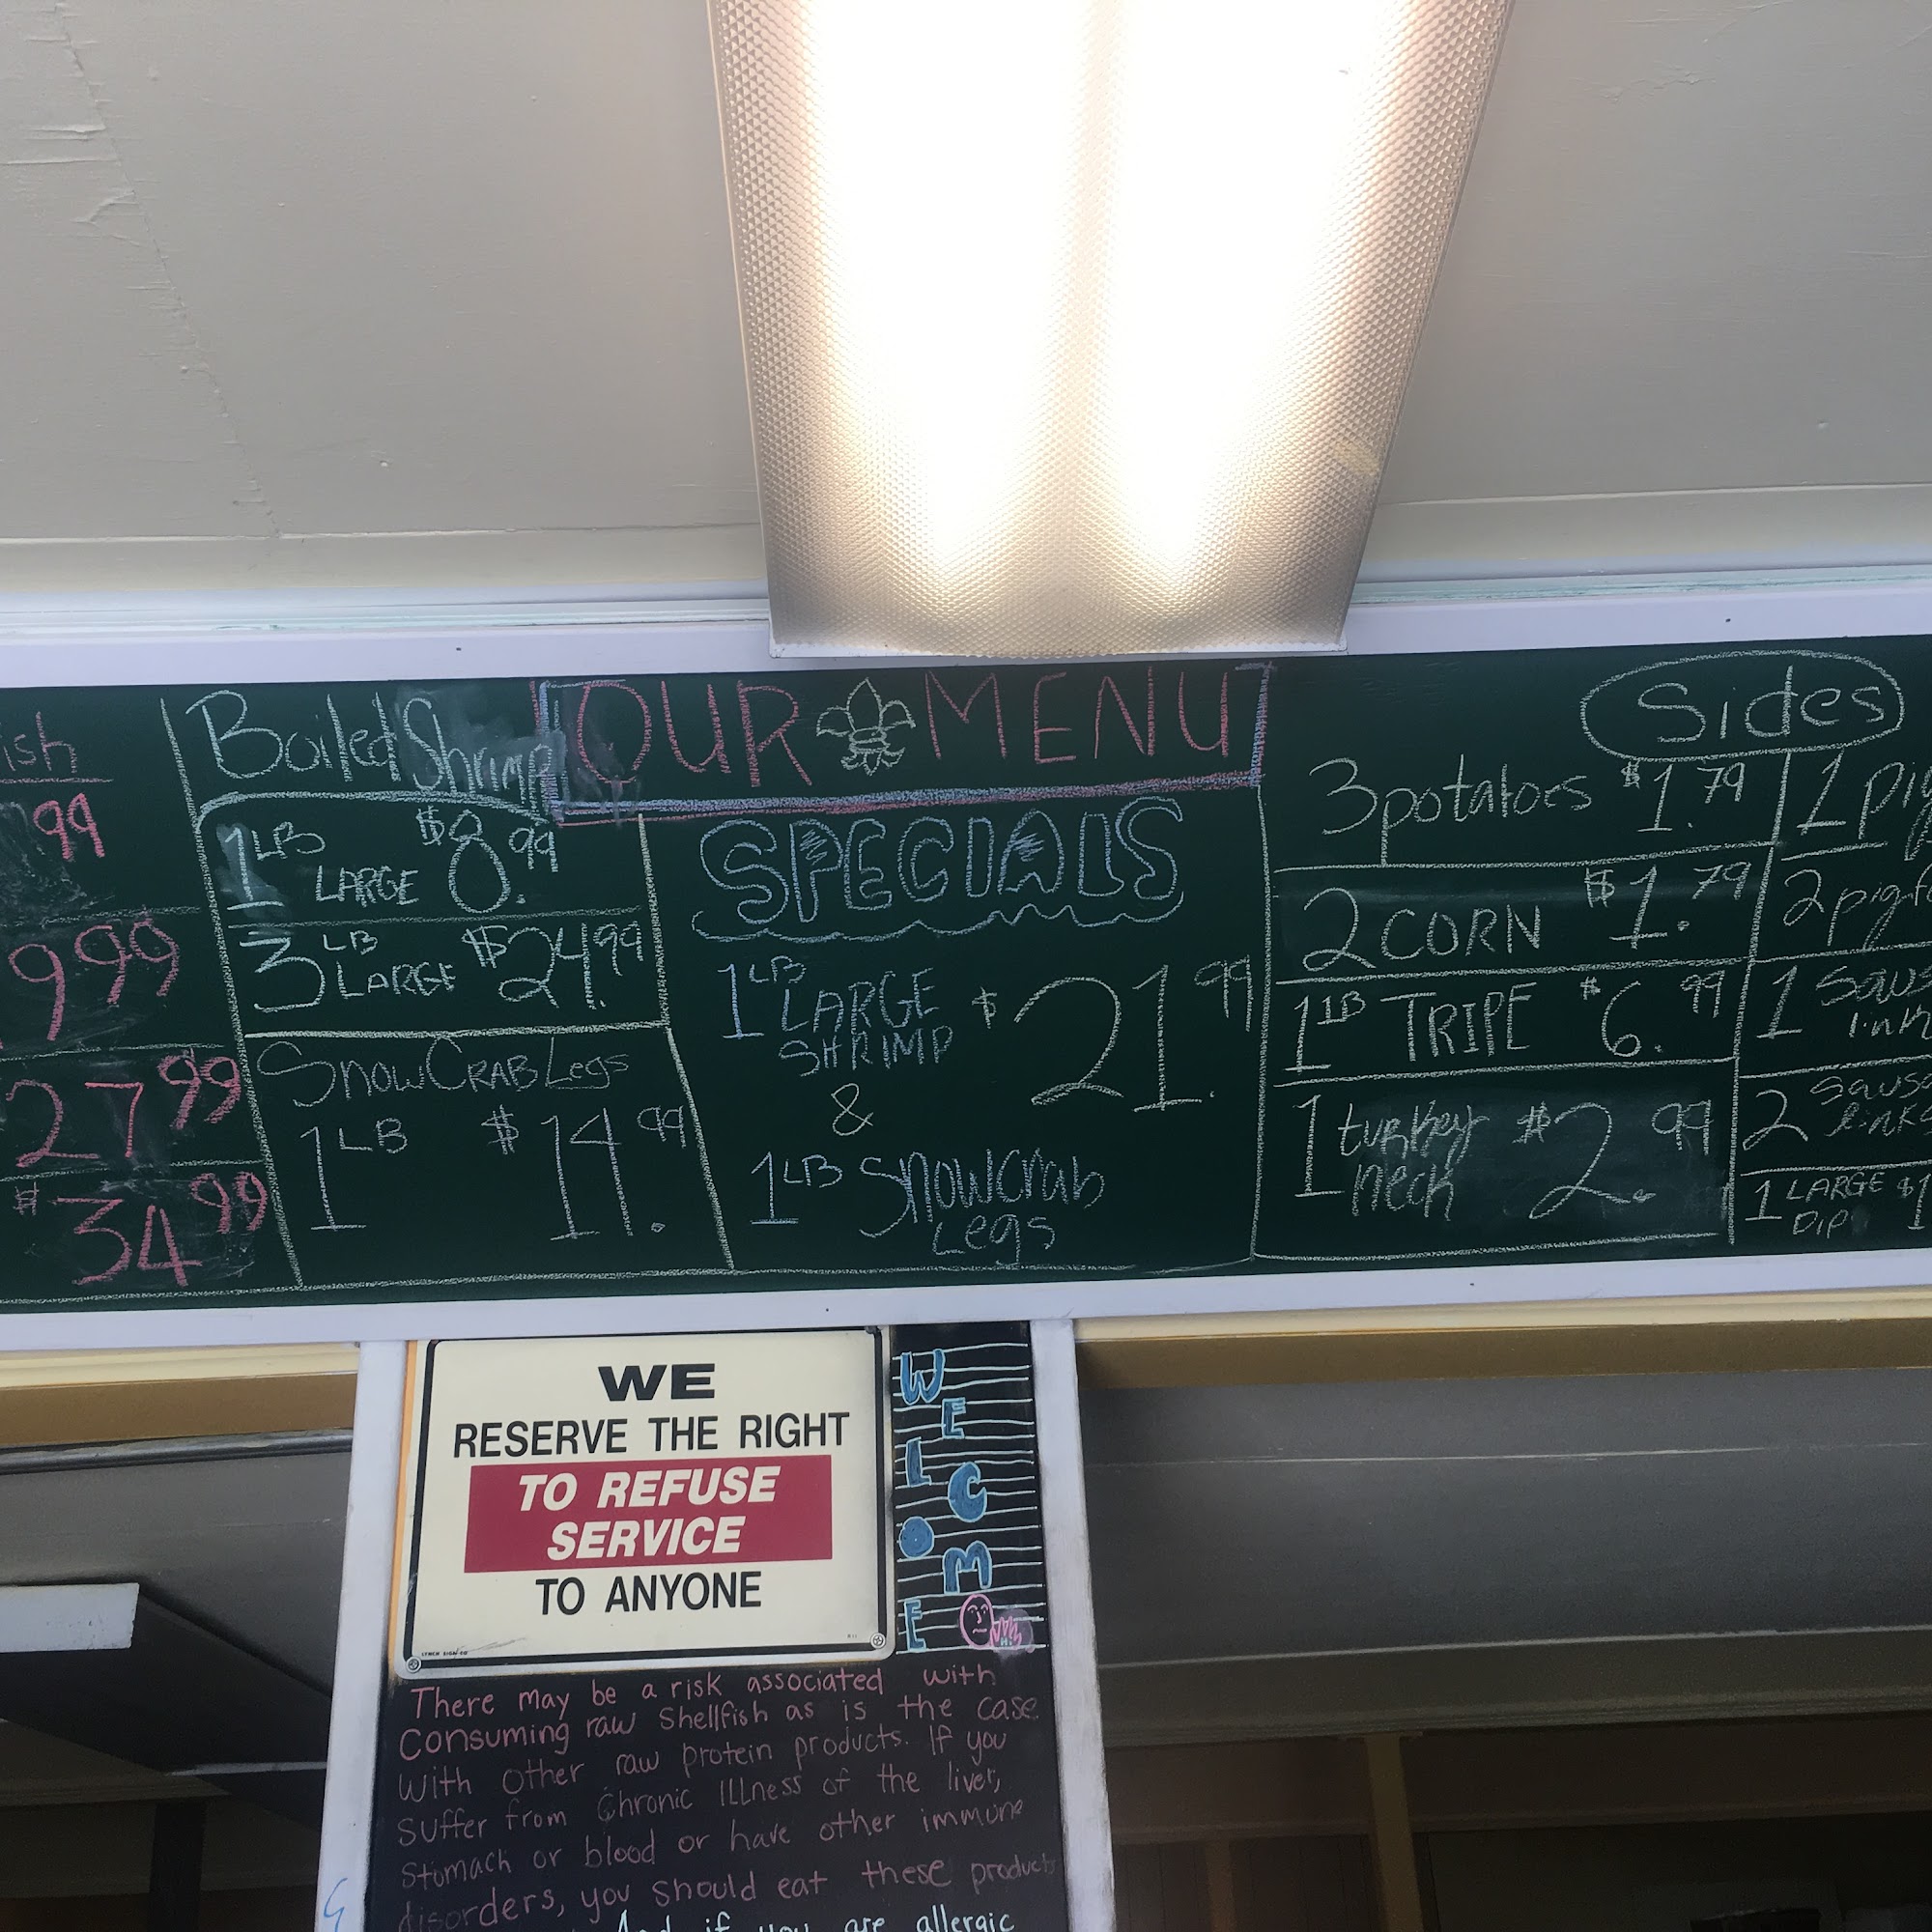 OUR MENU
ish
99
999
2799
$3499
Boiled Shrimp
1LB LARGE $8.99
3LB LARGE $24.99
SNOW CRAB Legs
1LB $14.99
SPECIALS
1LB LARGE SHRIMP $21.99
&
1LB SNOWCrab Legs
Sides
3 potatoes $1.79
2 CORN $1.79
1LB TRIPE $6.99
1 turkey neck $2.99
1 pi
2 pig f
1 saus
link
2 saus
links
1 LARGE $1
DIP
WE
RESERVE THE RIGHT
TO REFUSE
SERVICE
TO ANYONE
LYNCH SIGN CO
WELCOME
There may be a risk associated with
Consuming raw Shellfish as is the case
with other raw protein products. If you
suffer from Chronic ILLness of the liver,
Stomach or blood or have other immune
disorders, you should eat these products
And if you are allergic